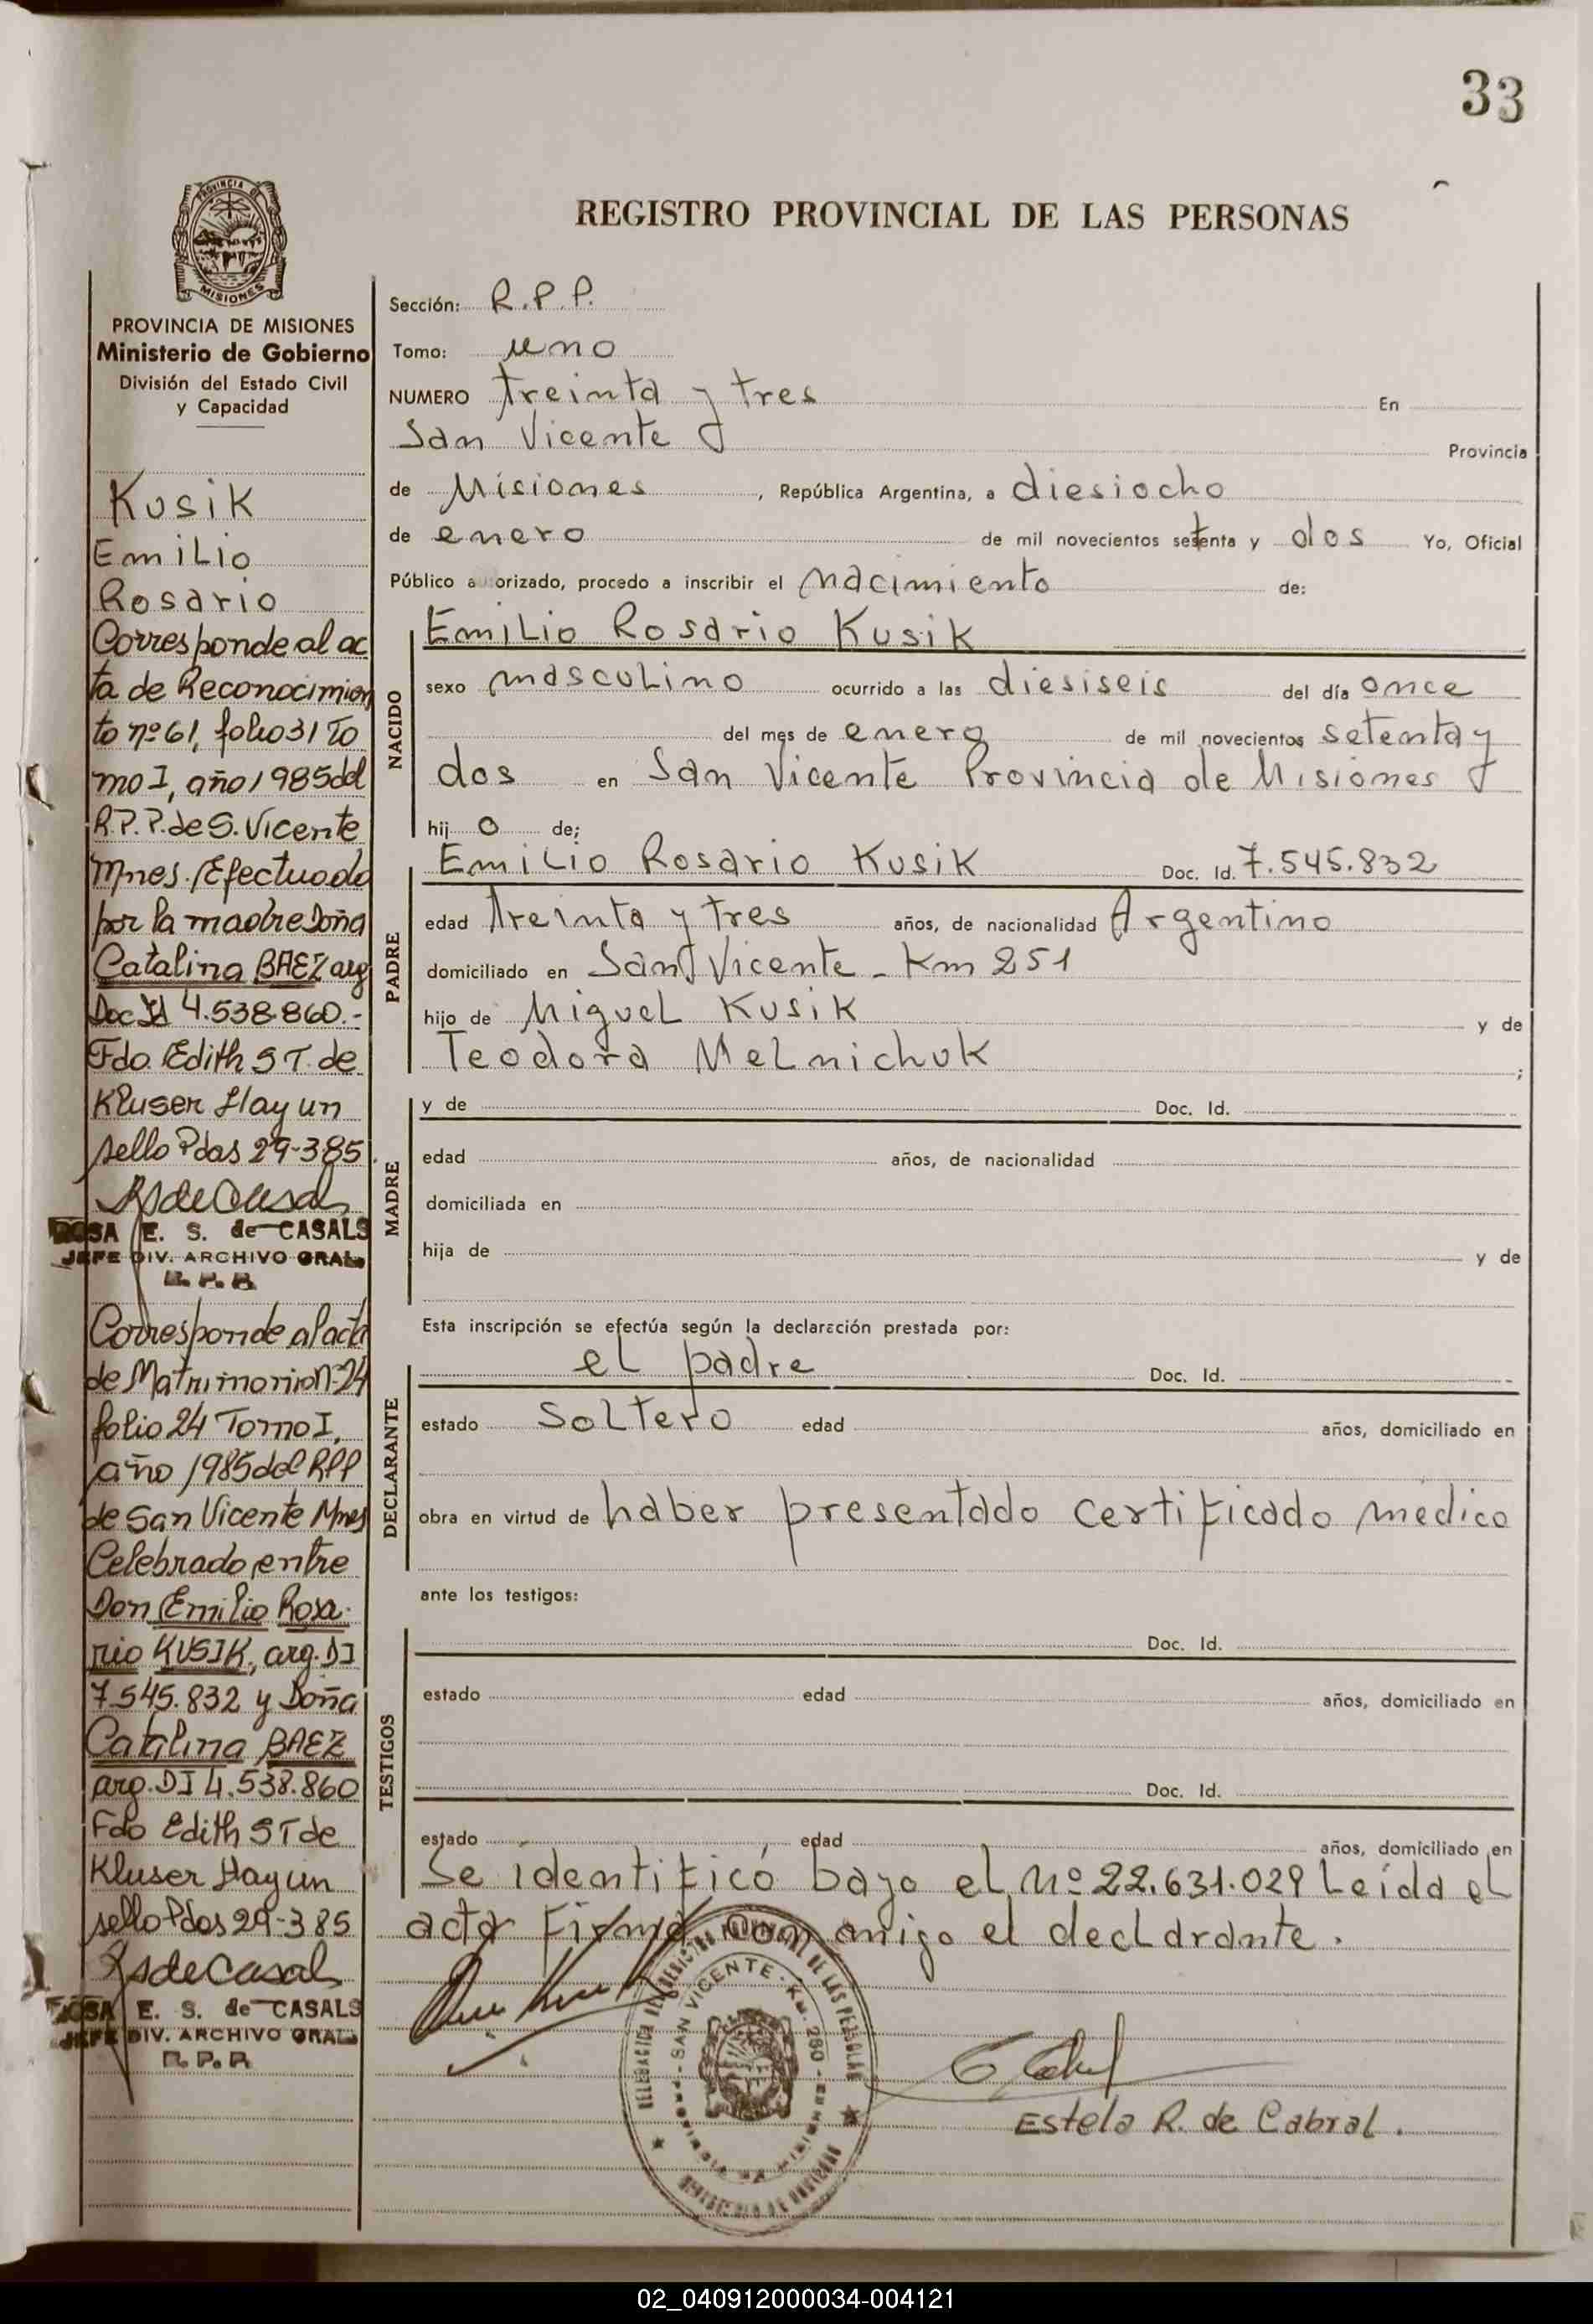 33
PROVINCIA DE
MISIONES
PROVINCIA DE MISIONES
Ministerio de Gobierno
División del Estado Civil
y Capacidad
Kusik
Emilio
Rosario
Corresponde al ac
ta de Reconocimien
to nº 61, folio 31 To
mo I, año 1985 del
R.P.P. de S. Vicente
Mnes. Efectuado
por la madre Doña
Catalina BAEZ arg
Doc Id 4.538.860.-
Fdo. Edith S T. de
Kluser Hay un
sello Pdas 29-3-85
RSdeCasals
ROSA E. S. de CASALS
JEFE DIV. ARCHIVO GRAL.
R. P. P.
Corresponde al acta
de Matrimonio nº 24
folio 24 Tomo I,
año 1985 del RPP
de San Vicente Mnes
Celebrado entre
Don Emilio Rosa-
rio KUSIK, arg. DI
7.545.832 y Doña
Catalina BAEZ
arg. DI 4.538.860
Fdo Edith S T de
Kluser Hay un
sello Pdas 29-3-85
RSdeCasals
ROSA E. S. de CASALS
JEFE DIV. ARCHIVO GRAL.
R. P. P.
REGISTRO PROVINCIAL DE LAS PERSONAS
Sección: R.P.P.
Tomo: uno
NUMERO treinta y tres En
San Vicente Provincia
de Misiones, República Argentina, a diesiocho
de enero de mil novecientos setenta y dos Yo, Oficial
Público autorizado, procedo a inscribir el nacimiento de:
NACIDO
Emilio Rosario Kusik
sexo masculino ocurrido a las diesiseis del día once
del mes de enero de mil novecientos setenta y
dos en San Vicente Provincia de Misiones
hij o de;
PADRE
Emilio Rosario Kusik Doc. Id. 7.545.832
edad treinta y tres años, de nacionalidad Argentino
domiciliado en San Vicente - Km 251
hijo de Miguel Kusik y de
Teodora Melnichuk ;
MADRE
y de Doc. Id.
edad años, de nacionalidad
domiciliada en
hija de y de
Esta inscripción se efectúa según la declaración prestada por:
DECLARANTE
el padre Doc. Id.
estado soltero edad años, domiciliado en
obra en virtud de haber presentado certificado médico
ante los testigos:
TESTIGOS
Doc. Id.
estado edad años, domiciliado en
Doc. Id.
estado edad años, domiciliado en
Se identificó bajo el Nº 22.631.029 Leída el
acta firma con migo el declarante.
DELEGACION DEL REGISTRO PROVINCIAL DE LAS PERSONAS
SAN VICENTE - Km. 260
Estela R. de Cabral.
02_040912000034-004121